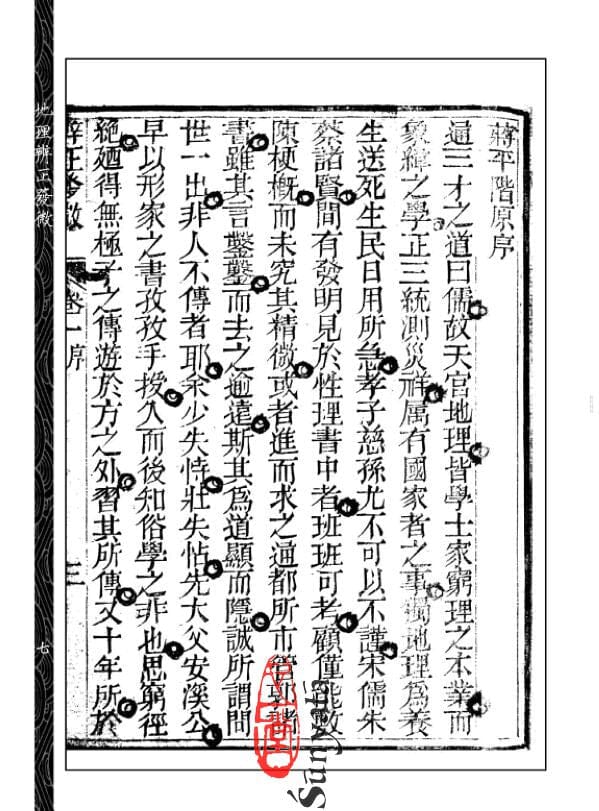 蔣平階原序
通三才之道曰儒故天官地理皆學士家窮理之本業而
象緯之學正三統測災祥属有國家者之事獨地理為養
生送死生民日用所急孝子慈孫尤不可以不謹宋儒朱
蔡諸賢間有發明見於性理書中者班班可考顧僅能敷
陳梗概而未究其精微或者進而求之通都所市管郭諸
書雖其言鑿鑿而去之逾遠斯其為道顯而隱誠所謂間
世一出非人不傳者耶余少失恃壯失怙先大父安溪公
早以形家之書孜孜手授久而後知俗學之非也思窮徑
絶廼得無極子之傳遊於方之外習其所傳又十年所於
辨正發微 卷一序 三
地理辨正發微
七
Śūnyatā